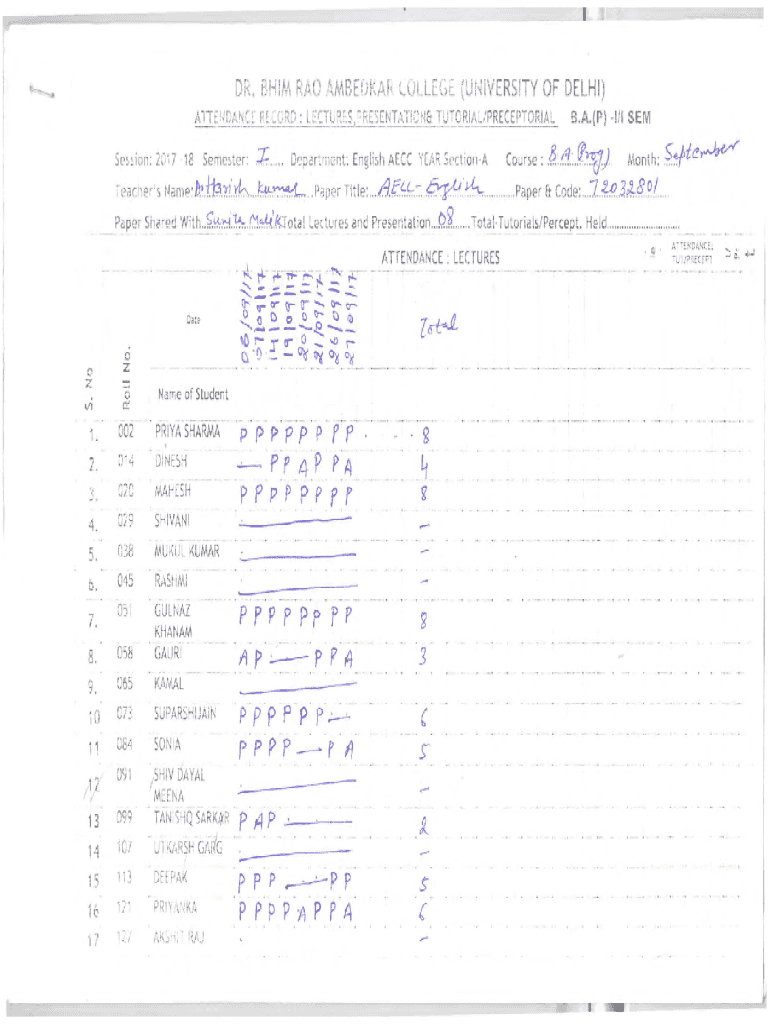 DR. BHIM RAO AMBEDKAR COLLEGE (UNIVERSITY OF DELHI)
ATTENDANCE RECORD : LECTURES, PRESENTATION& TUTORIAL/PRECEPTORIAL B.A.(P) -I/I SEM
Session: 2017 -18 Semester: I Department: English AECC YEAR Section-A Course : B A Prog) Month: September
Teacher's Name: Dr Harish Kumar Paper Title: AECC - English Paper & Code: 72032801
Paper Shared With Sunita Malik Total Lectures and Presentation 08 Total-Tutorials/Percept. Held
ATTENDANCE : LECTURES ATTENDANCE: TUT/PRECEPT
S. No Roll No. Date 06/09/17 07/09/17 14/09/17 19/09/17 20/09/17 21/09/17 26/09/17 27/09/17 Total
Name of Student
1. 002 PRIYA SHARMA P P P P P P P P 8
2. 014 DINESH — P P A P P A 4
3. 020 MAHESH P P P P P P P P 8
4. 029 SHIVANI — –
5. 038 MUKUL KUMAR — –
6. 045 RASHMI — –
7. 051 GULNAZ KHANAM P P P P P P P P 8
8. 058 GAURI A P — P P A 3
9. 065 KAMAL —
10 073 SUPARSHIJAIN P P P P P P — 6
11 084 SONIA P P P P — P A 5
12 091 SHIV DAYAL MEENA — –
13 099 TANISHQ SARKAR P A P — 2
14 107 UTKARSH GARG — –
15 113 DEEPAK P P P — P P 5
16 121 PRIYANKA P P P P A P P A 6
17 127 AKSHIT RAJ –